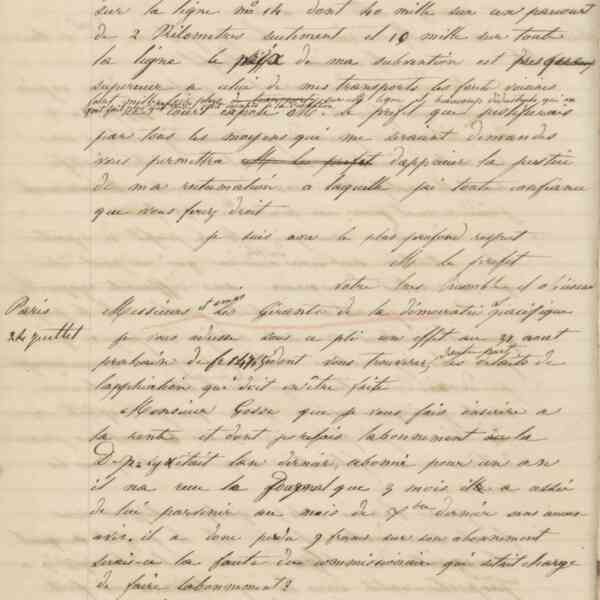 sur la ligne no 14 dont 40 mille sur un parcour
de 2 Kilometres seulement et 10 mille sur toute
la ligne le prix de ma subvention est presque
superieur a celui de mes transports les forts voisins
tout expose M. le prefet que je justifierais
par tous les moyens qui me seraient demandés
vous permettra M. le prefet d'appuier la justice
de ma reclamation a laquelle j'ai toute confiance
que vous ferez droit
je suis avec le plus profond respect
M le prefet
votre tres humble et o
Paris
24 juillet
Messieurs et amis les Gérants de la démocratie pacifique
je vous adresse sous ce pli un effet au 31 aout
prochain de fr 147,50 dont vous trouverez les details de
l'application qui doit en être faite
Monsieur Gosse que je vous fais inscrire a
la rente et dont je refais l'abonnement a la
D. p. etait l'an dernier abonné pour un an
il na recu la Journal que 3 mois il a cessé
de lui parvenir au mois de 7bre dernier sans aucun
avis. il a donc perdu 9 francs sur son abonnement
serais-ce la faute du commissionnaire qui s'etait chargé
de faire l'abonnement?